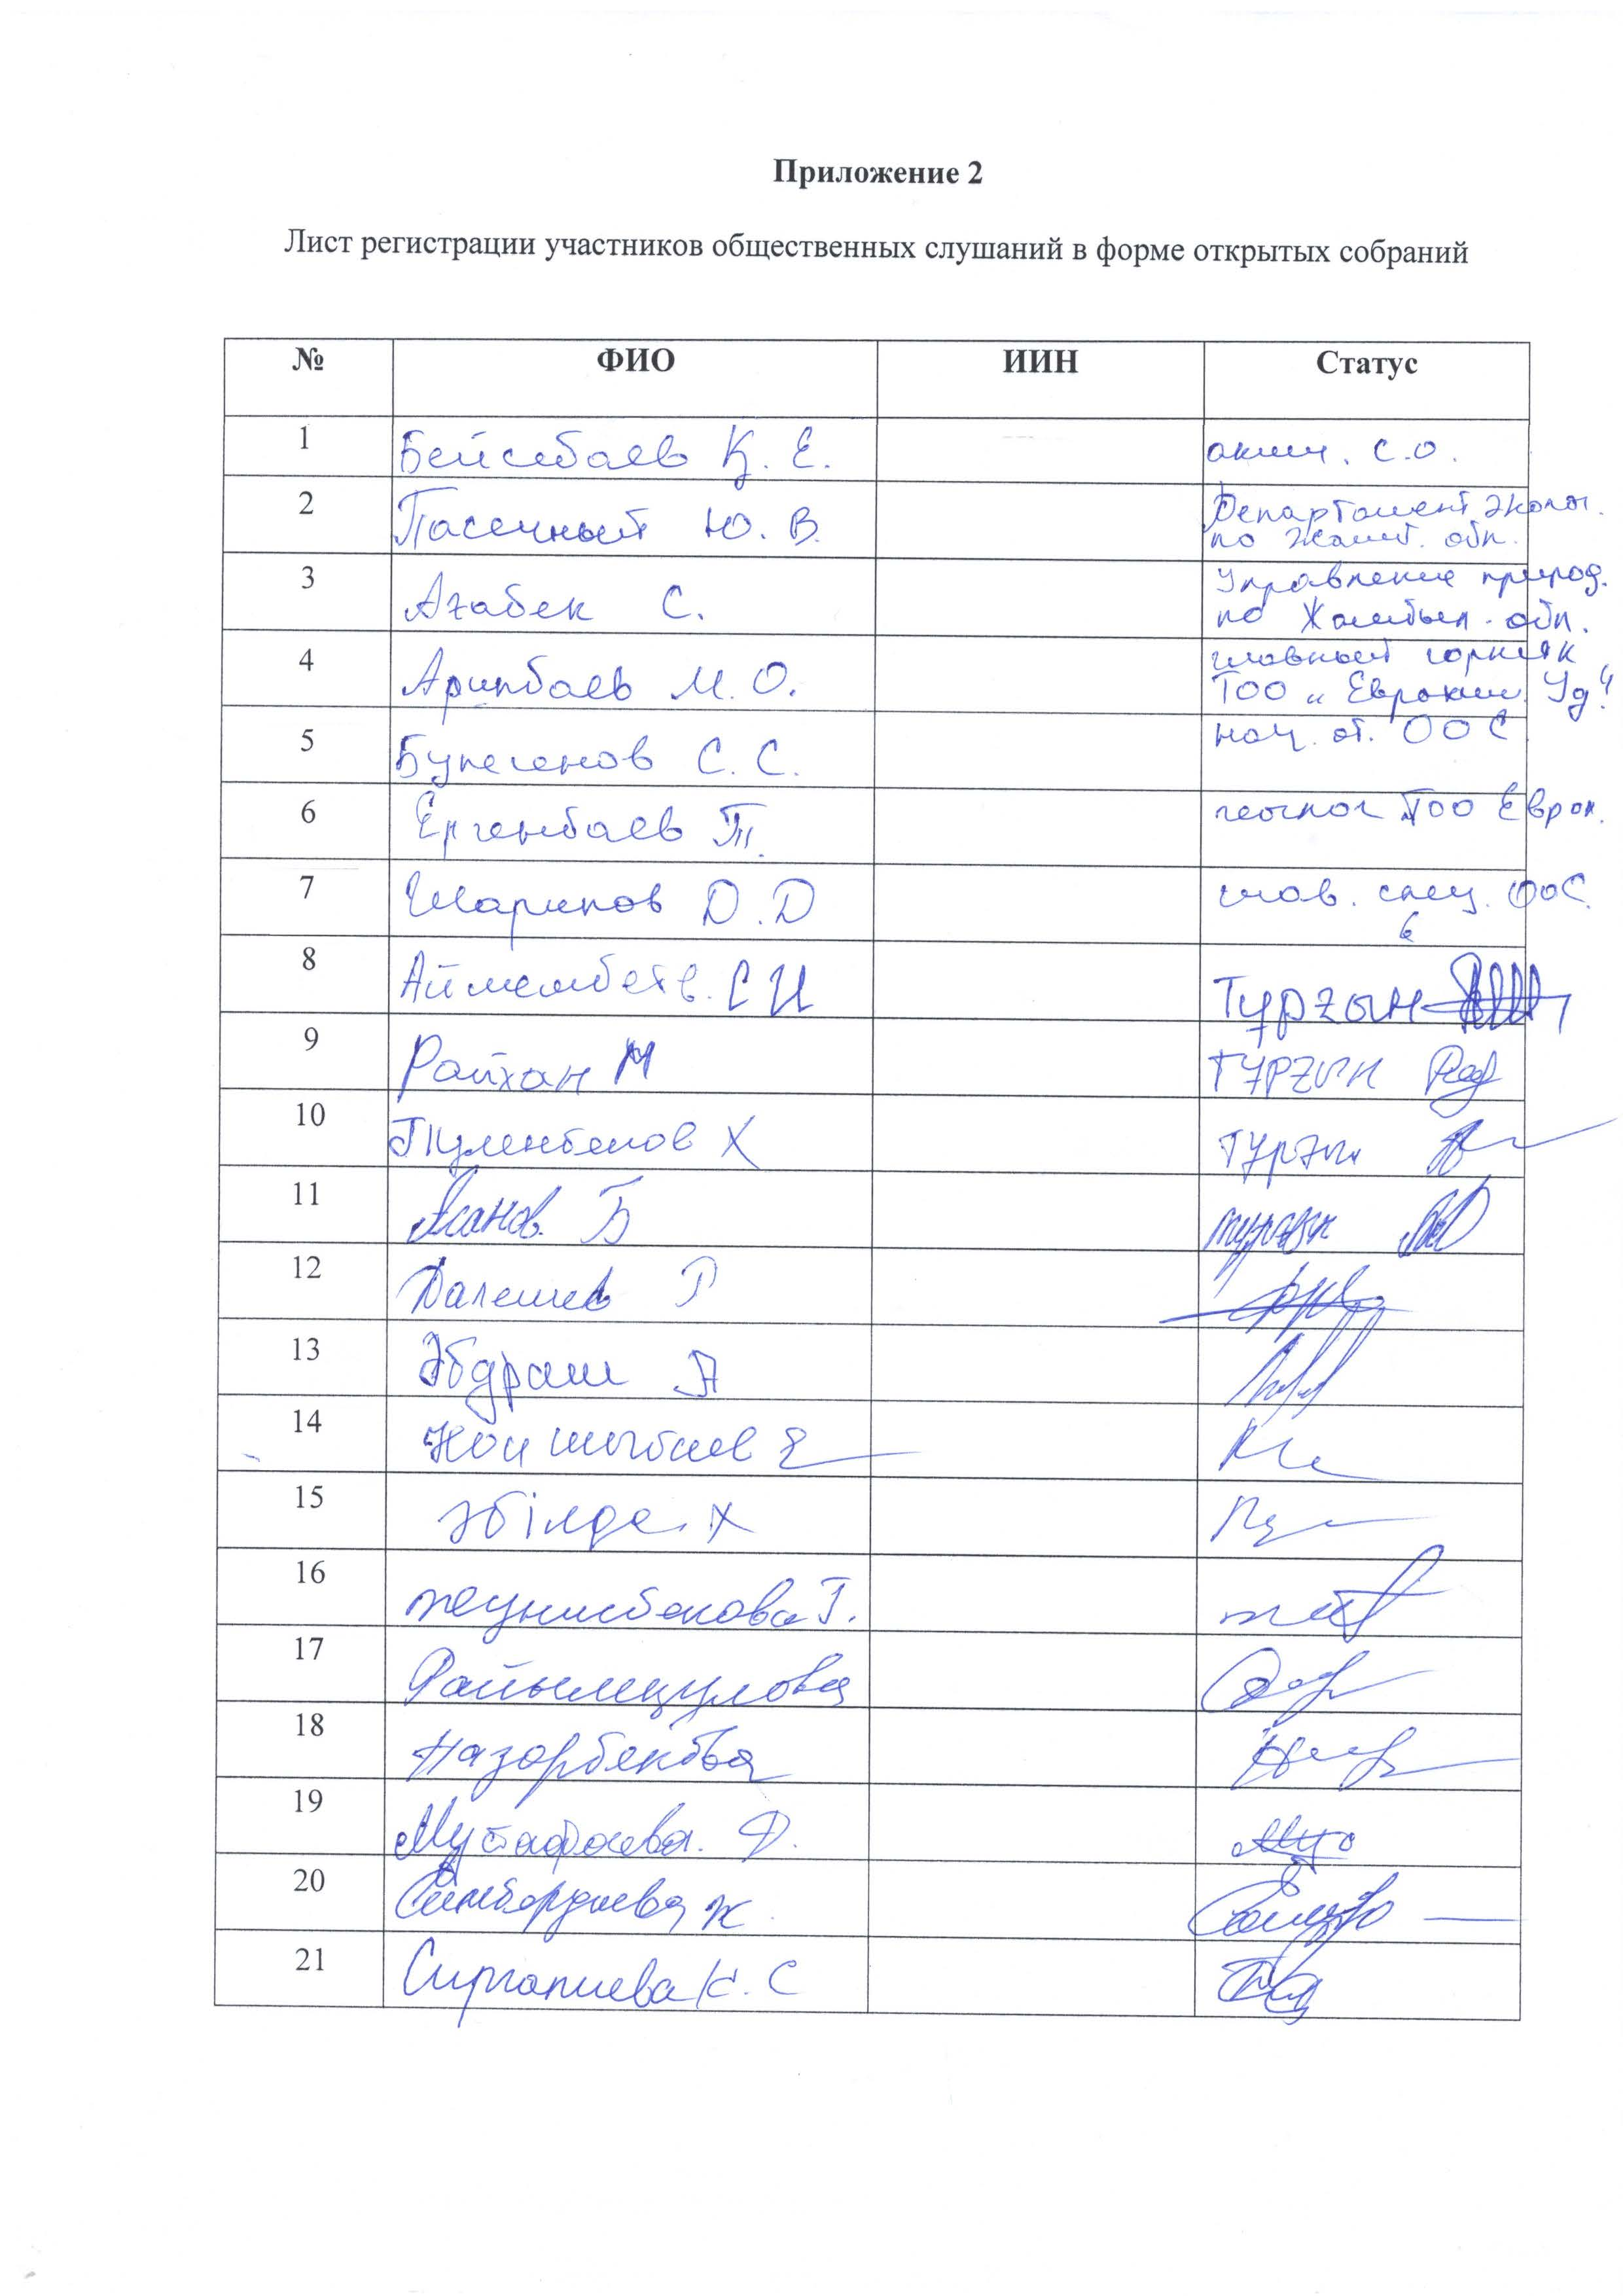 Приложение 2
Лист регистрации участников общественных слушаний в форме открытых собраний
№ ФИО ИИН Статус
1 Бейсебаев Қ. Е. аким. С.О.
2 Пасечный Ю. В. Департамент эколог.
по Жамб. обл.
3 Ағабек С. Управление природ.
по Жамбыл. обл.
4 Арипбаев М. О. главный горняк
ТОО „Еврохим. Уд"
5 С. С. нач. от. ООС
6 Ергенбаев Т. геолог ТОО Еврох.
7 Шарипов Д. Д глав. спец. ООС.
8 Аймембетв. С И Турғын
9 Райхан М Турғын
10 Х Турғын
11 Асанов. Б турғын
12 Р
13 Әбдраш А
14
15 Әбілда. Х
16 Жунисбекова Г.
17 Райымкулова
18 Назарбекова
19 Мустафаева. Д.
20 Ж.
21 К. С